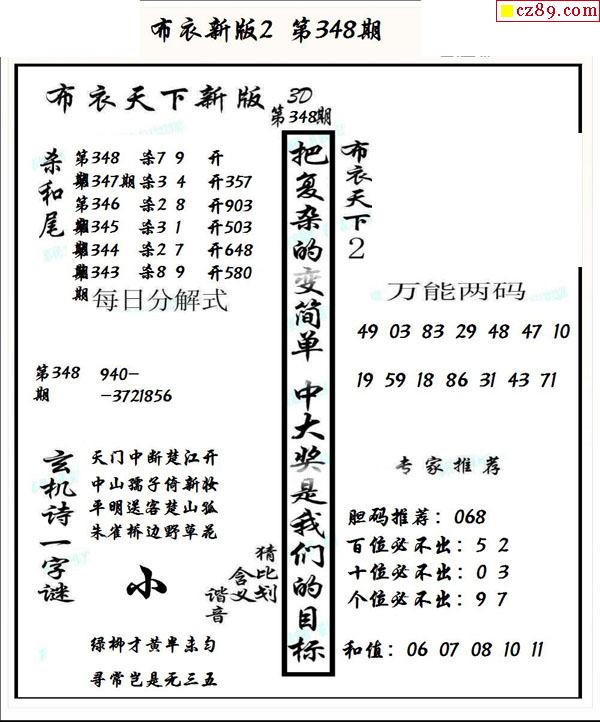 cz89.com
布衣新版2 第348期
布衣天下新版 3D
第348期
杀和尾
第348期 杀7 9 开
第347期 杀3 4 开357
第346期 杀2 8 开903
第345期 杀3 1 开503
第344期 杀2 7 开648
第343期 杀8 9 开580
每日分解式
第348期 940-
-3721856
玄机诗一字谜
天门中断楚江开
中山孺子倚新妆
平明送客楚山孤
朱雀桥边野草花
小
猜比划
含义
谐音
绿柳才黄半未匀
寻常岂是无三五
把复杂的变简单 中大奖是我们的目标
布衣天下2
万能两码
49 03 83 29 48 47 10
19 59 18 86 31 43 71
专家推荐
胆码推荐：068
百位必不出：5 2
十位必不出：0 3
个位必不出：9 7
和值：06 07 08 10 11